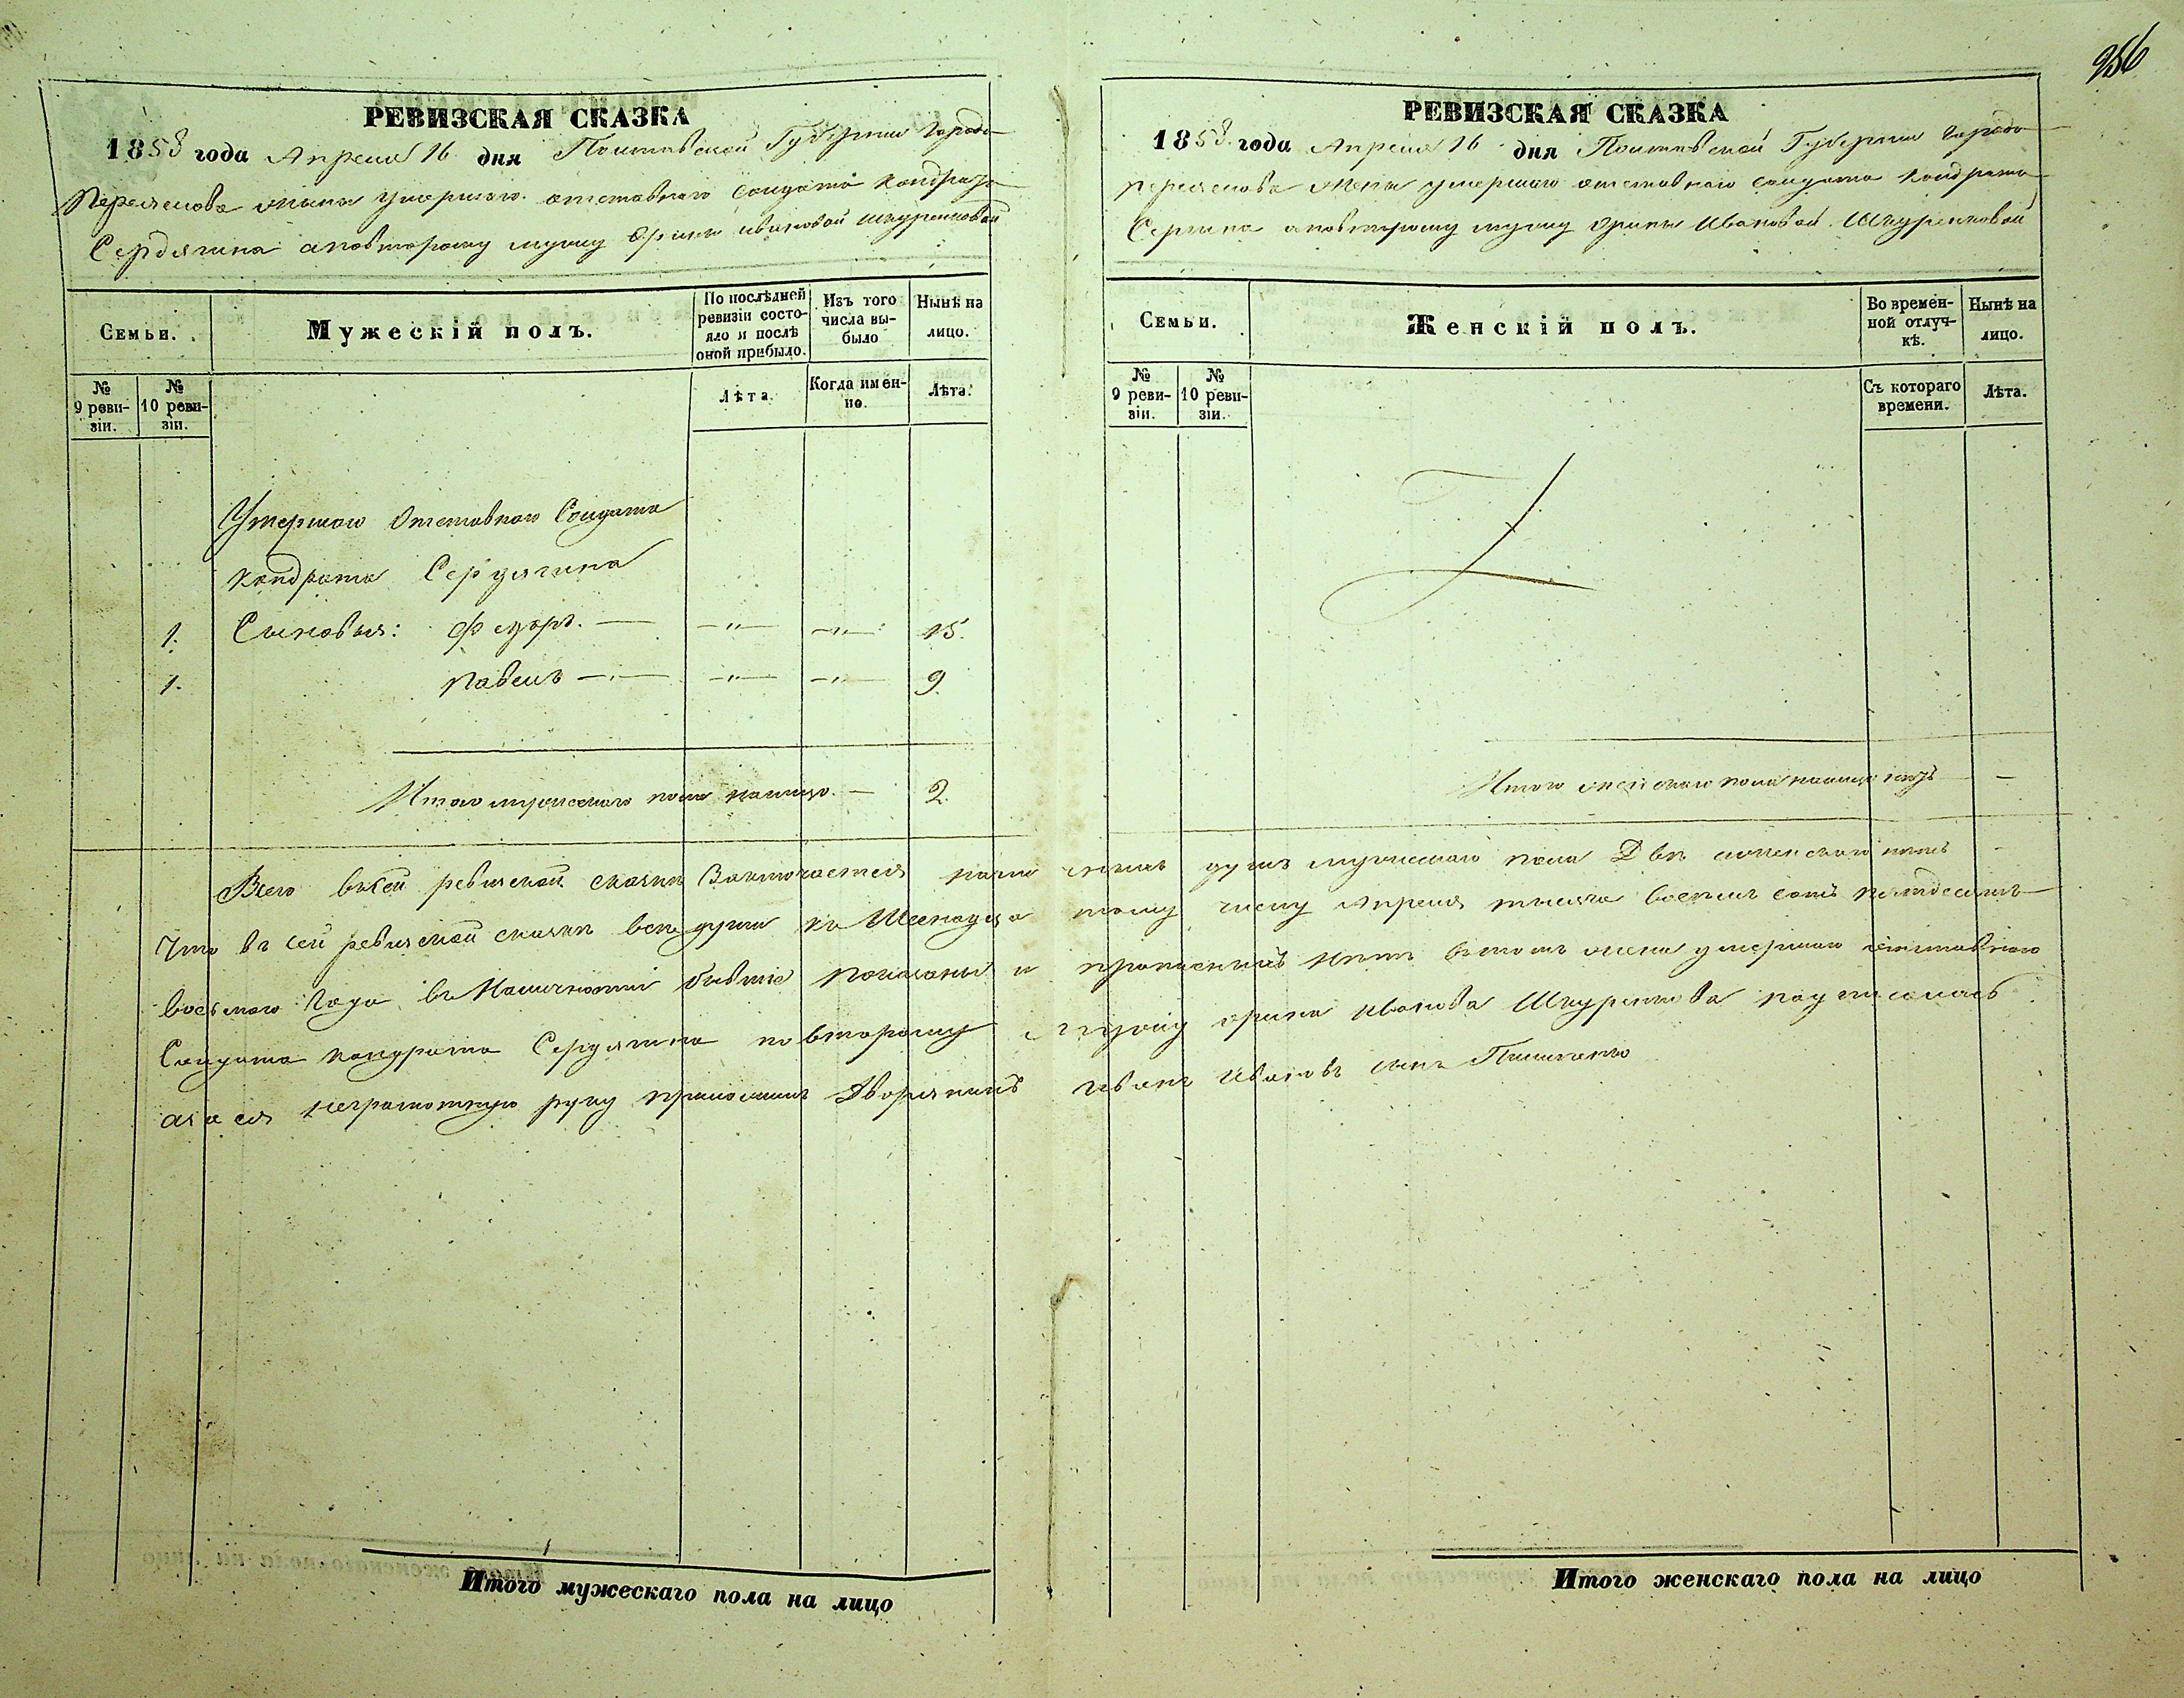 256
РЕВИЗСКАЯ СКАЗКА
1858 года Апреля 16 дня Полтавской Губернии города
Переяслова жены умершаго отставнаго солдата Кондрата
Сердягина а повторому мужу Орины Ивановой Шкуренковой
Семьи.
Мужескій полъ.
По послѣдней ревизіи состояло и послѣ оной прибыло.
Изъ того числа выбыло
Нынѣ на лицо.
№ 9 ревизіи.
№ 10 ревизіи.
Лѣта.
Когда именно.
Лѣта.
Умершаго Отставнаго Солдата
Кондрата Сердягина
1. Сыновья: Федоръ. — —„— —„— 15.
1. Павелъ —„— —„— —„— 9.
Итого мужескаго пола налицо. — 2.
РЕВИЗСКАЯ СКАЗКА
1858 года Апреля 16 дня Полтавской Губернии города
Переяслова жены умершаго отставнаго солдата Кондрата
а повторому мужу Орины Ивановой Шкуренковой
Семьи.
Женскій полъ.
Во временной отлучкѣ.
Нынѣ на лицо.
№ 9 ревизіи.
№ 10 ревизіи.
Съ котораго времени.
Лѣта.
Итого женскаго пола налицо —
Всего въ сей ревизской сказки Заключается душъ мужескаго пола Двѣ женскаго
Что въ сей ревизской сказки все души къ Шеснадца тому числу Апреля тысяча восемь сотъ пятдесятъ
восьмаго Года въ Наличности бывшіе показаны и прописныхъ нетъ въ томъ жена умершаго отставнаго
Солдата Кондрата Сердягина по второму мужу Орина Иванова Шкуренкова подписалась
а за ея неграмотную руку приложилъ Дворянинъ Иванъ Ивановъ сынъ
Итого мужескаго пола на лицо
Итого женскаго пола на лицо